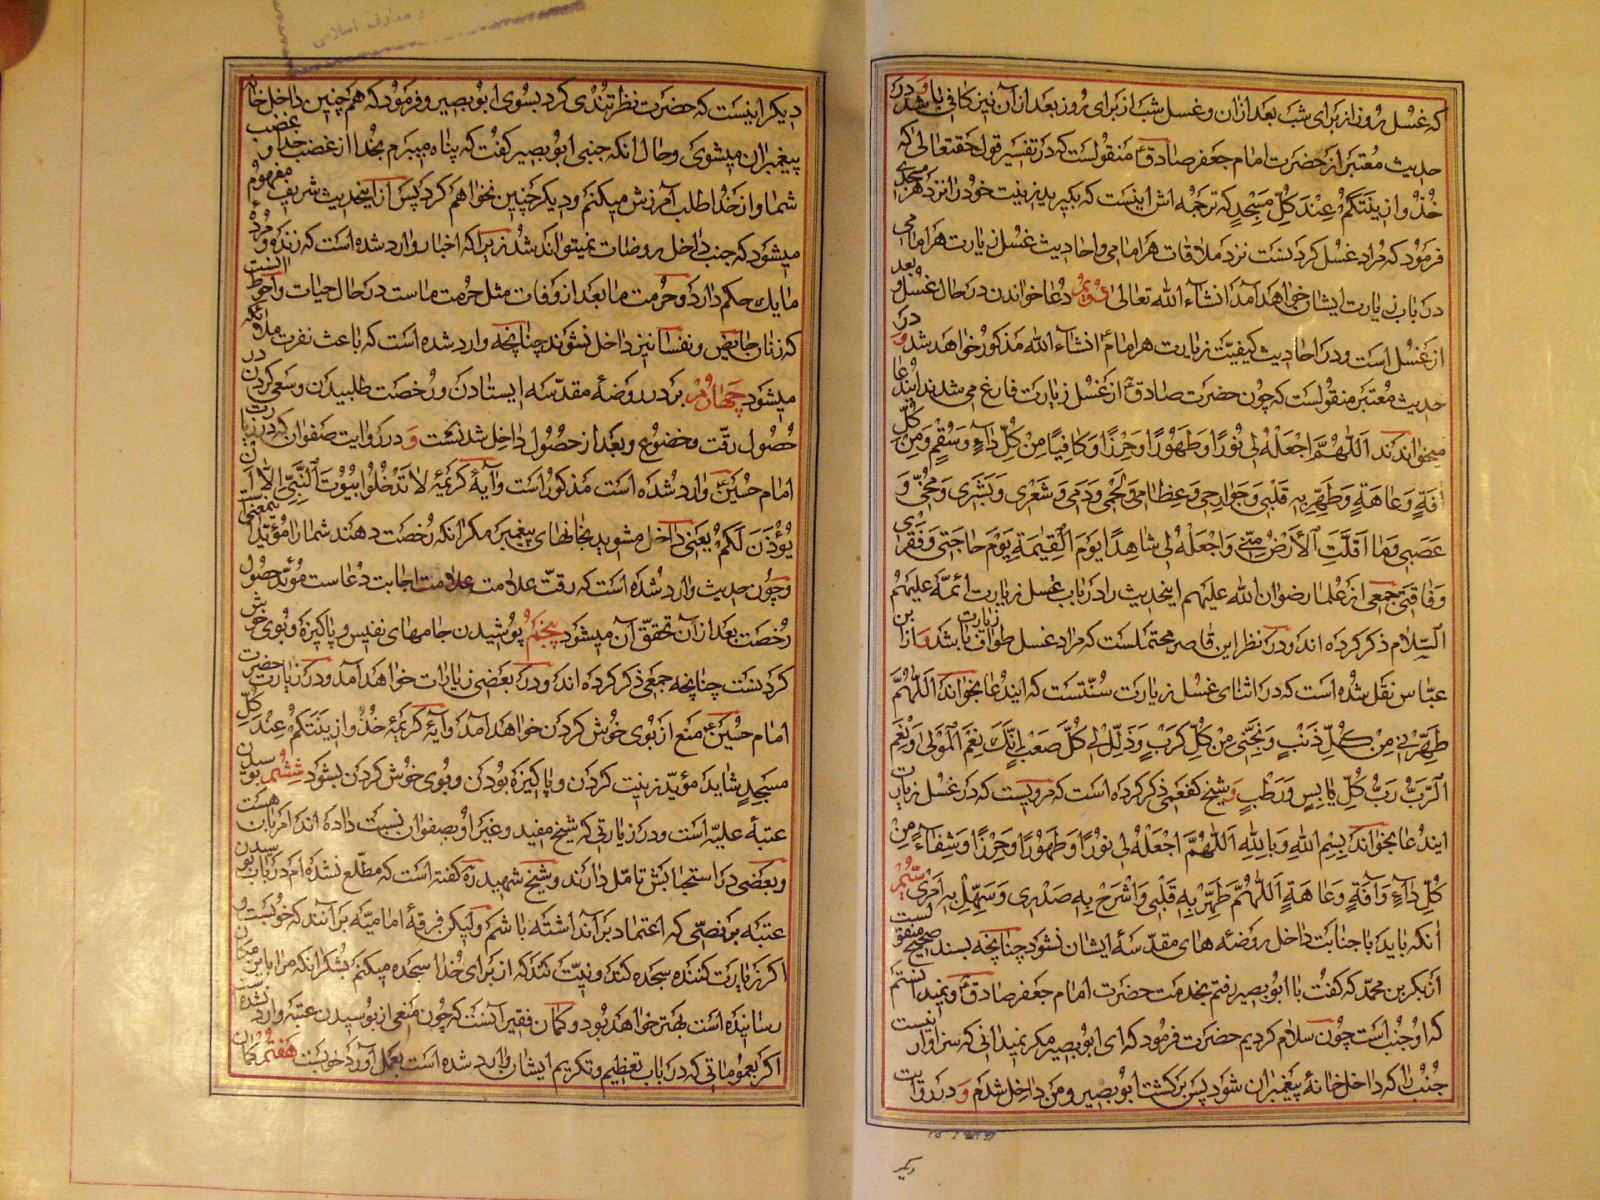 که غسل روز از برای شب بعد از آن و غسل شب از برای روز بعد از آن نیز کافی باشد و در
حدیث معتبر از حضرت امام جعفر صادق ع منقولست که در تفسیر قول حقتعالی که
خُذُوا زینَتَکُمْ عِنْدَ کُلِّ مَسْجِدٍ که ترجمه اش اینست که بگیرید زینت خود را نزد هر مسجدی
فرمود که مراد غسل کردنست نزد ملاقات هر امامی و احادیث غسل زیارت هر امامی
در باب زیارت ایشان خواهد آمد انشاء الله تعالی دویم دعا خواندن در حال غسل و بعد
از غسل است و در احادیث کیفیت زیارت هر امام انشاء الله مذکور خواهد شد و در
حدیث معتبر منقولست که چون حضرت صادق ع از غسل زیارت فارغ می شدند این دعا
میخواندند اَللّهُمَّ اجْعَلْهُ لی نُورًا وَ طَهُورًا وَ حِرْزًا وَ کافِیًا مِنْ کُلِّ داءٍ وَ سُقْمٍ وَ مِنْ کُلِّ
افَةٍ وَ عاهَةٍ وَ طَهِّرْ بِهِ قَلْبی وَ جَوارِحی وَ عِظامی وَ لَحْمی وَ دَمی وَ شَعْری وَ بَشَری وَ مُخّی وَ
عَصَبی وَ ما اَقَلَّتِ الْاَرْضُ مِنّی وَ اجْعَلْهُ لی شاهِدًا یَوْمَ الْقِیٰمَةِ یَوْمَ حاجَتی وَ فَقْری
وَ فاقَتی جمعی از علما رضوان الله علیهم اینحدیث را در باب غسل زیارت ائمّه علیهم
السلام ذکر کرده اند و در نظر این قاصر محتملست که مراد غسل طواف زیارت باشد و از ابن
عباس نقل شده است که در اثنای غسل زیارت سنّتست که ایندعا بخواند اَللّهُمَّ
طَهِّرْنی مِنْ کُلِّ ذَنْبٍ وَ نَجِّنی مِنْ کُلِّ کَرْبٍ وَ ذَلِّلْ لی کُلَّ صَعْبٍ اِنَّکَ نِعْمَ الْمَوْلی وَ نِعْمَ
الرَّبُّ رَبُّ کُلِّ یابِسٍ وَ رَطْبٍ و شیخ کفعمی ذکر کرده است که مرویست که در غسل زیارت
ایندعا بخواند بِسْمِ اللهِ وَ بِاللهِ اَللّهُمَّ اجْعَلْهُ لی نُورًا وَ طَهُورًا وَ حِرْزًا وَ شِفاءً مِنْ
کُلِّ داءٍ وَ آفَةٍ وَ عاهَةٍ اَللّهُمَّ طَهِّرْ بِهِ قَلْبی وَ اشْرَحْ بِهِ صَدْری وَ سَهِّلْ بِهِ اَمْری سیّم
آنکه باید با جنابت داخل روضه های مقدسه ایشان نشود چنانچه بسند صحیح منقولست
از بکر بن محمد که گفت با ابو بصیر رفتم بخدمت حضرت امام جعفر صادق ع و نمیدانستم
که او جنب است چون سلام کردیم حضرت فرمود که ای ابو بصیر مگر نمیدانی که سزاوار نیست
جنب را که داخل خانهٔ پیغمبران شود پس برگشت ابو بصیر و من داخل شدم و در روایت
دیگر
دیگر اینست که حضرت نظر تندی کرد بسوی ابو بصیر و فرمود که همچنین داخل خانه
پیغمبران میشوی و حال آنکه جنبی ابو بصیر گفت که پناه میبرم بخدا از غضب خدا و غضب
شما و از خدا طلب آمرزش میکنم و دیگر چنین نخواهم کرد پس از اینحدیث شریف مفهوم
میشود که جنب داخل روضات نمیتواند شد زیرا که اخبار وارد شده است که زنده و مردهٔ
ما یک حکم دارد و حرمت ما بعد از وفات مثل حرمت ماست در حال حیات و احوط آنست
که زنان حایض و نفسا نیز داخل نشوند چنانچه وارد شده است که باعث نفرت ملائکه
میشود چهارم بر در روضهٔ مقدسه ایستادن و رخصت طلبیدن و سعی کردن در
حصول رقّت و خضوع و بعد از حصول داخل شدنست و در روایت صفوان که در زیارت
امام حسین ع وارد شده است مذکور است و آیهٔ کریمهٔ لا تَدْخُلُوا بُیُوتَ النَّبِیِّ اِلّا اَنْ
یُؤْذَنَ لَکُمْ یعنی داخل مشوید بخانهای پیغمبر مگر آنکه رخصت دهند شما را مؤید اینمعنی است
و چون حدیث وارد شده است که رقّت علامت علامت اجابت دعاست مؤید حصول
رخصت بعد از آن تحقق آن میشود پنجم پوشیدن جامهای نفیس و پاکیزه و بوی خوش
کردنست چنانچه جمعی ذکر کرده اند و در بعضی زیارات خواهد آمد و در زیارت حضرت
امام حسین ع منع از بوی خوش کردن خواهد آمد و آیهٔ کریمهٔ خُذُوا زینَتَکُمْ عِنْدَ کُلِّ
مَسْجِدٍ شاید مؤید زینت کردن و پاکیزه بودن و بوی خوش کردن بشود ششم بوسیدن
عتبهٔ علیّه است و در زیارتی که شیخ مفید و غیر او بصفوان نسبت داده اند امر بآن هست
و بعضی در استحبابش تأمل دارند و شیخ شهید ره گفته است که مطلع نشده ام در باب بوسیدن
عتبه بر نصّی که اعتماد بر آن داشته باشم ولیکن فرقهٔ امامیّه بر آنند که خوبست و
اگر زیارت کننده سجده کند و نیّت کند که از برای خدا سجده میکنم بشکر آنکه مرا باین مکان
رسانیده است بهتر خواهد بود و گمان فقیر آنست که چون منعی از بوسیدن عتبه وارد نشده است
اگر بعموماتی که در باب تعظیم و تکریم ایشان وارد شده است بعمل آورد خوبست هفتم